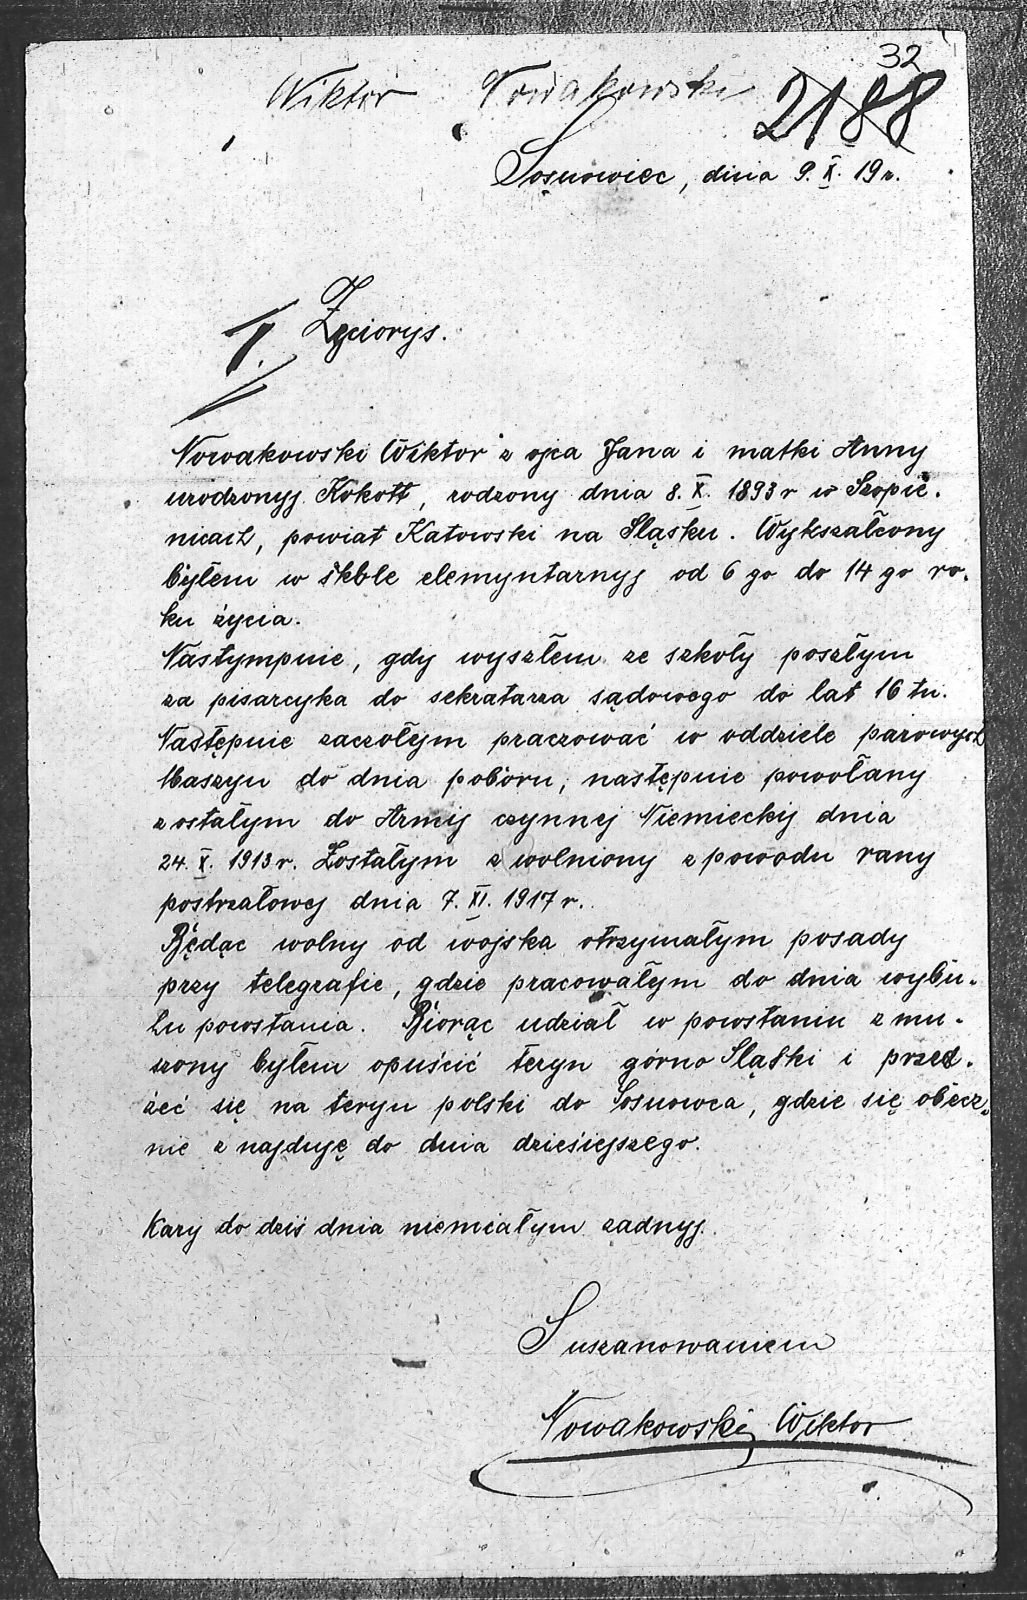 32
Wiktor Nowakowski
2188
Sosnowiec, dnia 9. X. 19 r.
Życiorys.
Nowakowski Wiktor z ojca Jana i matki Anny
urodzonyj Kokott, rodzony dnia 8. X. 1893 r w Szopie-
nicach, powiat Katowski na Śląsku. Wykszałcony
byłem w škole elemyntarnyj od 6 go do 14 go ro-
ku życia.
Nastympnie, gdy wyszłem ze szkoły poszłym
za pisarcyka do sekratarza sądowego do lat 16 tu.
Następnie zaczołym praczować w oddziele parowych
Maszyn do dnia poboru, następnie powołany
zostałym do Armij czynnej Niemieckij dnia
24. X. 1913 r. Zostałym zwolniony z powodu rany
postrzałowej dnia 7. XI. 1917 r.
Będąc wolny od wojska otrzymałym posady
przy telegrafie, gdzie pracowałym do dnia wybu-
hu powstania. Biorąc udział w powstaniu zmu-
szony byłem opuścić teryn górno Sląski i przed-
żeć się na teryn polski do Sosnowca, gdzie się obecz-
nie znajduję do dnia dzieśiejszego.
Kary do dziś dnia niemiałym zadnyj.
S uszanowaniem
Nowakowski Wiktor